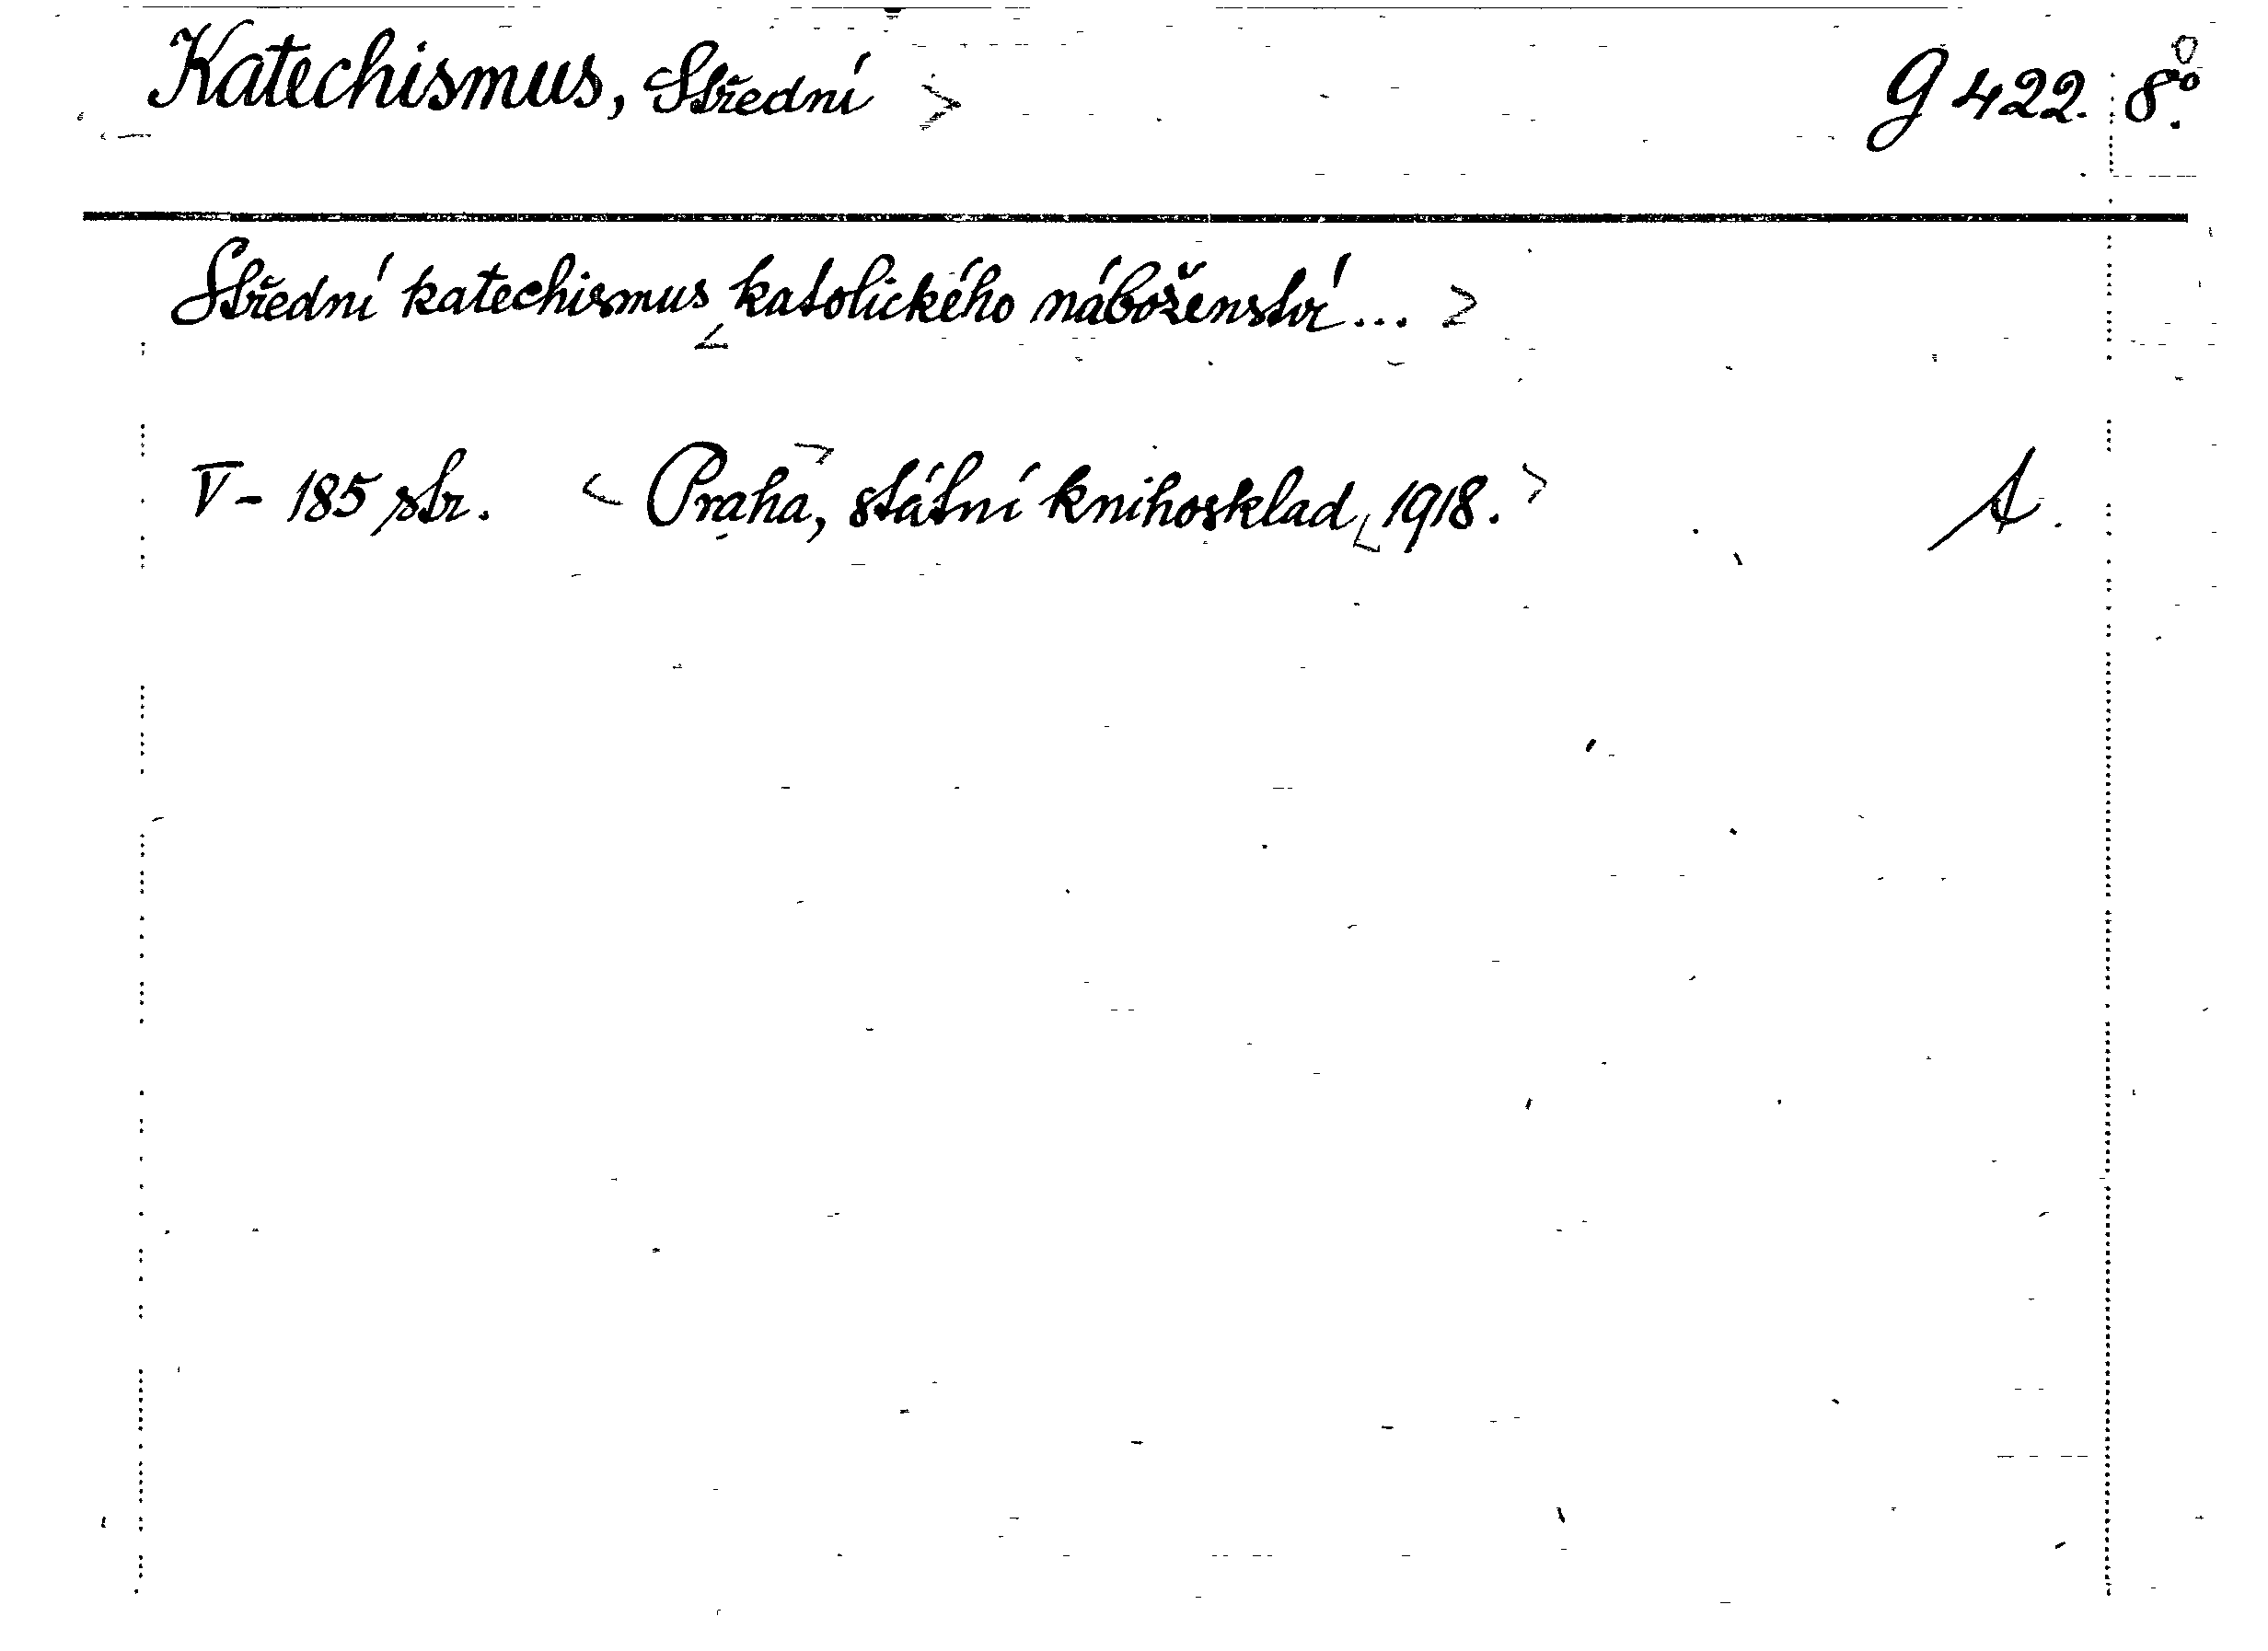 Katechismus, Střední G 422. 8°.
Střední katechismus katolického náboženství...
V - 185 str. Praha, státní knihosklad, 1918. A.